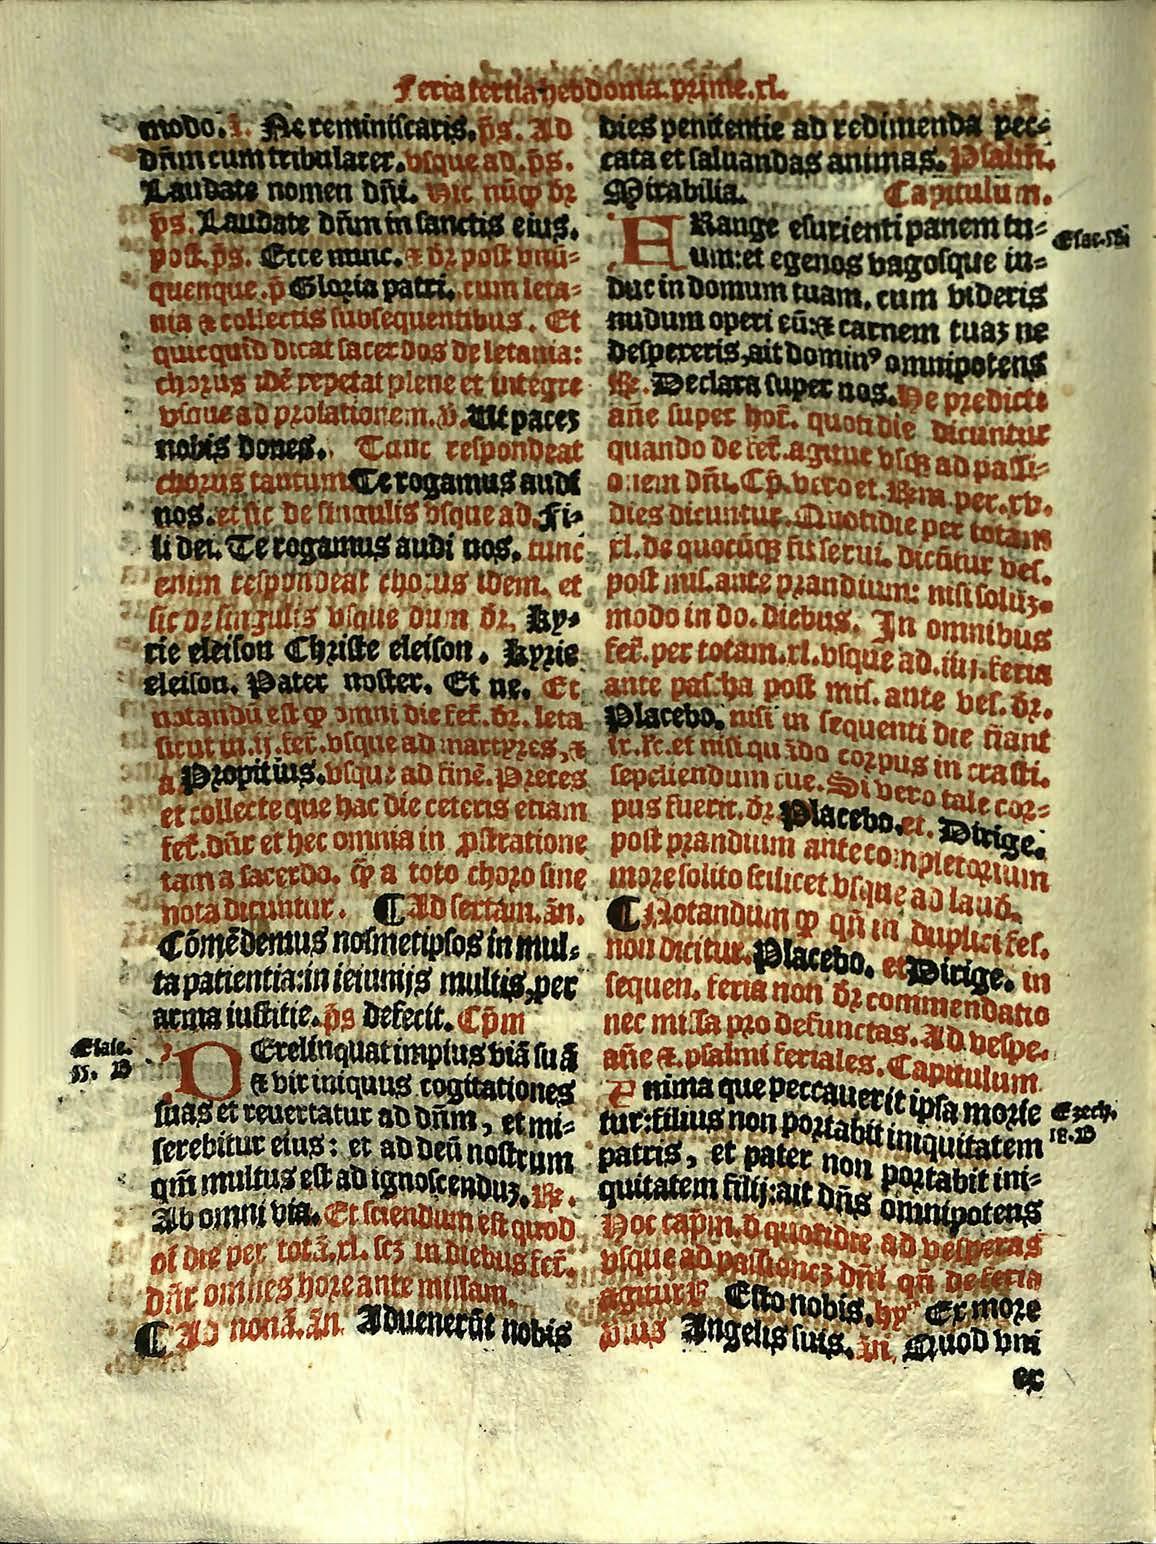 Feria tertia hebdoma. prime. xl.
modo. i. Ne reminiscaris. p̄s. Ad
dn̄m cum tribularer. vsque ad. p̄s.
Laudate nomen dn̄i. Hic nūq̄ dr̄
p̄s. Laudate dn̄m in sanctis eius.
post. p̄s. Ecce nunc. ⁊ dr̄ post vnū-
quenque. p̄ Gloria patri. cum leta-
nia ⁊ collectis subsequentibus. Et
quicquid dicat sacerdos de letania:
chorus idē repetat plene et integre
vsque ad prolationem. v̄. Ut pacez
nobis dones. Tunc respondeat
chorus tantum Te rogamus audi
nos. et sic de singulis vsque ad. Fi-
li dei. Te rogamus audi nos. tunc
enim respondeat chorus idem. et
sic de singulis vsque dum dr̄. Ky-
rie eleison Christe eleison. Kyrie
eleison. Pater noster. Et ne. Et
notandū est q̄ omni die fer̄. dr̄. leta
sicut in. ij. fer̄. vsque ad martyres, ⁊
a Propitius. vsque ad finē. Preces
et collecte que hac die ceteris etiam
fer̄. dn̄r et hec omnia in p̄stratione
tam a sacerdo. q̄ a toto choro sine
nota dicuntur. ¶ Ad sextam. ān.
Cōmēdemus nosmetipsos in mul-
ta patientia: in ieiunijs multis, per
arma iustitie. p̄s Defecit. Cp̄m
Esaie.
55. B
DErelinquat impius viā suā
⁊ vir iniquus cogitationes
suas et reuertatur ad dn̄m, et mi-
serebitur eius: et ad deū nostrum
qm̄ multus est ad ignoscenduz. ℟.
Ab omni via. Et sciendum est quod
oī die per totā. xl. scz in diebus fer̄.
dn̄r omnes hore ante missam.
¶ Ad nonā. ān. Aduenerūt nobis
dies penitentie ad redimenda pec-
cata et saluandas animas. Psalm̄.
Mirabilia. Capitulum.
FRange esurienti panem tu-
um: et egenos vagosque in-
duc in domum tuam. cum videris
nudum operi eū: ⁊ carnem tuaz ne
despexeris, ait dominꝰ omnipotens
℟. Declara super nos. He predicte
an̄e super hor̄. quotidie dicuntur
quando de fer̄. agitur vsq̄ ad passi-
onem dn̄i. Cp̄. vero et. Rem per. xv.
dies dicuntur. Quotidie per totam
xl. de quocūq̄ fit serui. dicūtur ves.
post mis. ante prandium: nisi soluz-
modo in do. diebus. In omnibus
fer̄. per totam. xl. vsque ad. iiij. feria
ante pascha post mis. ante ves. dr̄.
Placebo. nisi in sequenti die fiant
ix. lc̄. et nisi quādo corpus in crasti.
sepeliendum fue. Si vero tale cor-
pus fuerit. dr̄ Placebo. et. Dirige.
post prandium ante completorium
more solito scilicet vsque ad laud̄.
¶ Notandum q̄ qn̄ in duplici fes.
non dicitur. Placebo. et Dirige. in
sequen. feria non dr̄ commendatio
nec missa pro defunctas. Ad vespe.
an̄e ⁊. psalmi feriales. Capitulum
Anima que peccauerit ipsa morie
tur: filius non portabit iniquitatem
patris, et pater non portabit ini-
quitatem filij: ait dn̄s omnipotens
Hoc cap̄m. d̄ quotidie ad vesperas
vsque ad passionez dn̄i qn̄ de feria
agitur ℟ Esto nobis. hy. Ex more
Angelis suis. ān. Quod vni
ex
Esae. 58
Ezech.
18. B